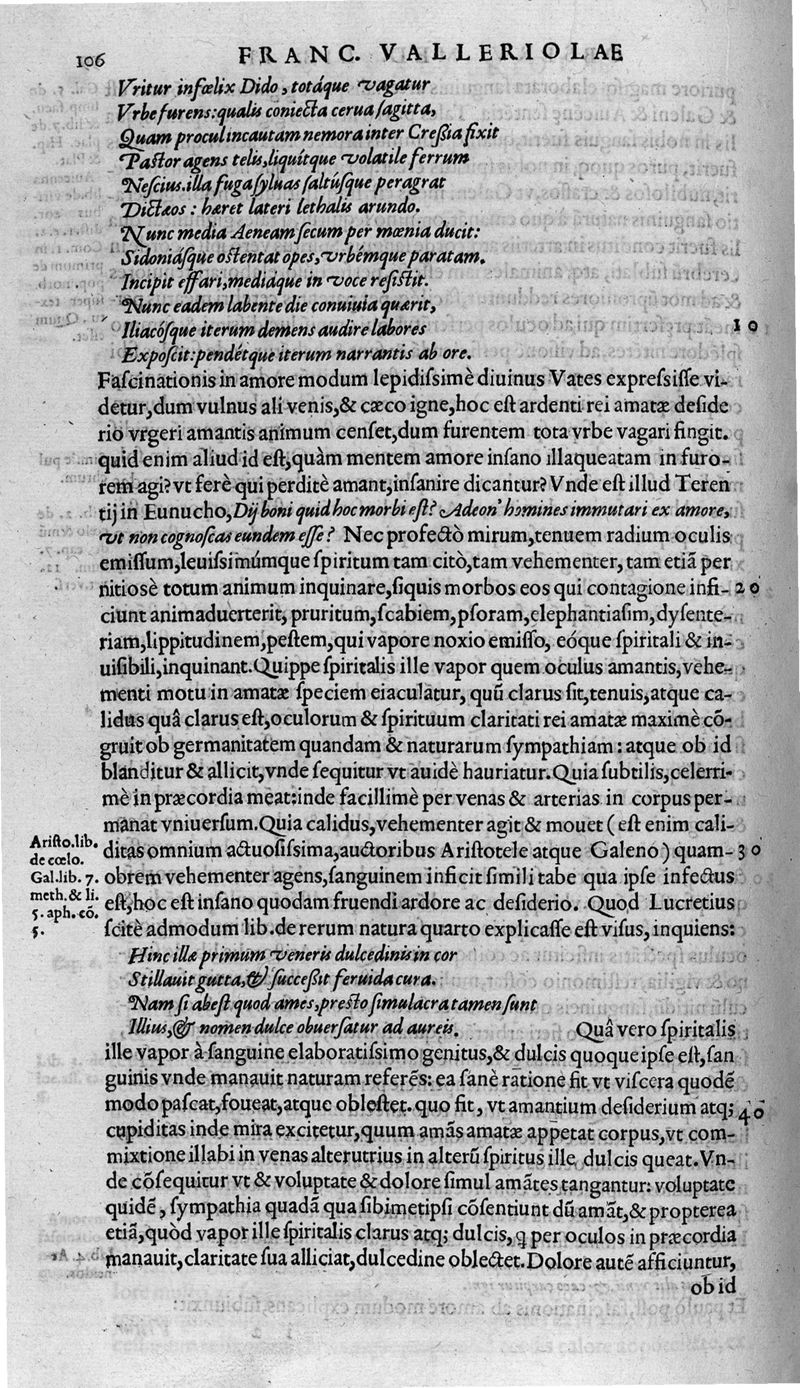 106 FRANC. VALLERIOLAE
Vritur infœlix Dido, totáque vagatur
Vrbe furens: qualis coniecta cerua sagitta,
Quam procul incautam nemora inter Creßia fixit
Pastor agens telis, liquítque volatile ferrum
Nescius. illa fuga syluas saltúsque peragrat
Dictæos: hæret lateri lethalis arundo.
Nunc media Aeneam secum per mœnia ducit:
Sidoniásque ostentat opes, vrbémque paratam.
Incipit effari, mediáque in voce resistit.
Nunc eadem labente die conuiuia quærit,
Iliacósque iterum demens audire labores 10
Exposcit: pendétque iterum narrantis ab ore.
Fascinationis in amore modum lepidissimè diuinus Vates expressisse vi-
detur, dum vulnus ali venis, & cæco igne, hoc est ardenti rei amatæ deside
rio vrgeri amantis animum censet, dum furentem tota vrbe vagari fingit.
quid enim aliud id est, quàm mentem amore insano illaqueatam in furo-
rem agi? vt ferè qui perditè amant, insanire dicantur? Vnde est illud Teren
tij in Eunucho, Dij boni quid hoc morbi est? Adeon' homines immutari ex amore,
vt non cognoscas eundem esse? Nec profectò mirum, tenuem radium oculis
emissum, leuissimúmque spiritum tam citò, tam vehementer, tam etiã per
nitiosè totum animum inquinare, siquis morbos eos qui contagione infi- 20
ciunt animaduerterit, pruritum, scabiem, psoram, elephantiasim, dysente-
riam, lippitudinem, pestem, qui vapore noxio emisso, eóque spiritali & in-
uisibili, inquinant. Quippe spiritalis ille vapor quem oculus amantis, vehe-
menti motu in amatæ speciem eiaculatur, quũ clarus sit, tenuis, atque ca-
lidus quâ clarus est, oculorum & spirituum claritati rei amatæ maximè cõ-
gruit ob germanitatem quandam & naturarum sympathiam: atque ob id
blanditur & allicit, vnde sequitur vt auidè hauriatur. Quia subtilis, celerri-
mè in præcordia meat: inde facillimè per venas & arterias in corpus per-
manat vniuersum. Quia calidus, vehementer agit & mouet (est enim cali-
Aristo. lib. de cœlo. ditas omnium actuosissima, auctoribus Aristotele atque Galeno) quam- 30
Gal. lib. 7. obrem vehementer agens, sanguinem inficit simili tabe qua ipse infectus
meth. & li. 5. aph. cõ. est, hoc est insano quodam fruendi ardore ac desiderio. Quod Lucretius
5. scitè admodum lib. de rerum natura quarto explicasse est visus, inquiens:
Hinc illæ primum veneris dulcedinis in cor
Stillauit gutta, & succeßit feruida cura.
Nam si abest quod ames, presto simulacra tamen sunt
Illius, & nomen dulce obuersatur ad aureis. Quâ vero spiritalis
ille vapor à sanguine elaboratissimo genitus, & dulcis quoque ipse est, san
guinis vnde manauit naturam referẽs: ea sanè ratione fit vt viscera quodẽ
modo pascat, foueat, atque oblectet. quo fit, vt amantium desiderium atq; 40
cupiditas inde mira excitetur, quum amãs amatæ appetat corpus, vt com-
mixtione illabi in venas alterutrius in alterũ spiritus ille dulcis queat. Vn-
de cõsequitur vt & voluptate & dolore simul amãtes tangantur: voluptate
quidẽ, sympathia quadã qua sibimetipsi cõsentiunt dũ amãt, & propterea
etiã, quòd vapor ille spiritalis clarus atq; dulcis, q per oculos in præcordia
manauit, claritate sua alliciat, dulcedine oblectet. Dolore autẽ afficiuntur,
ob id